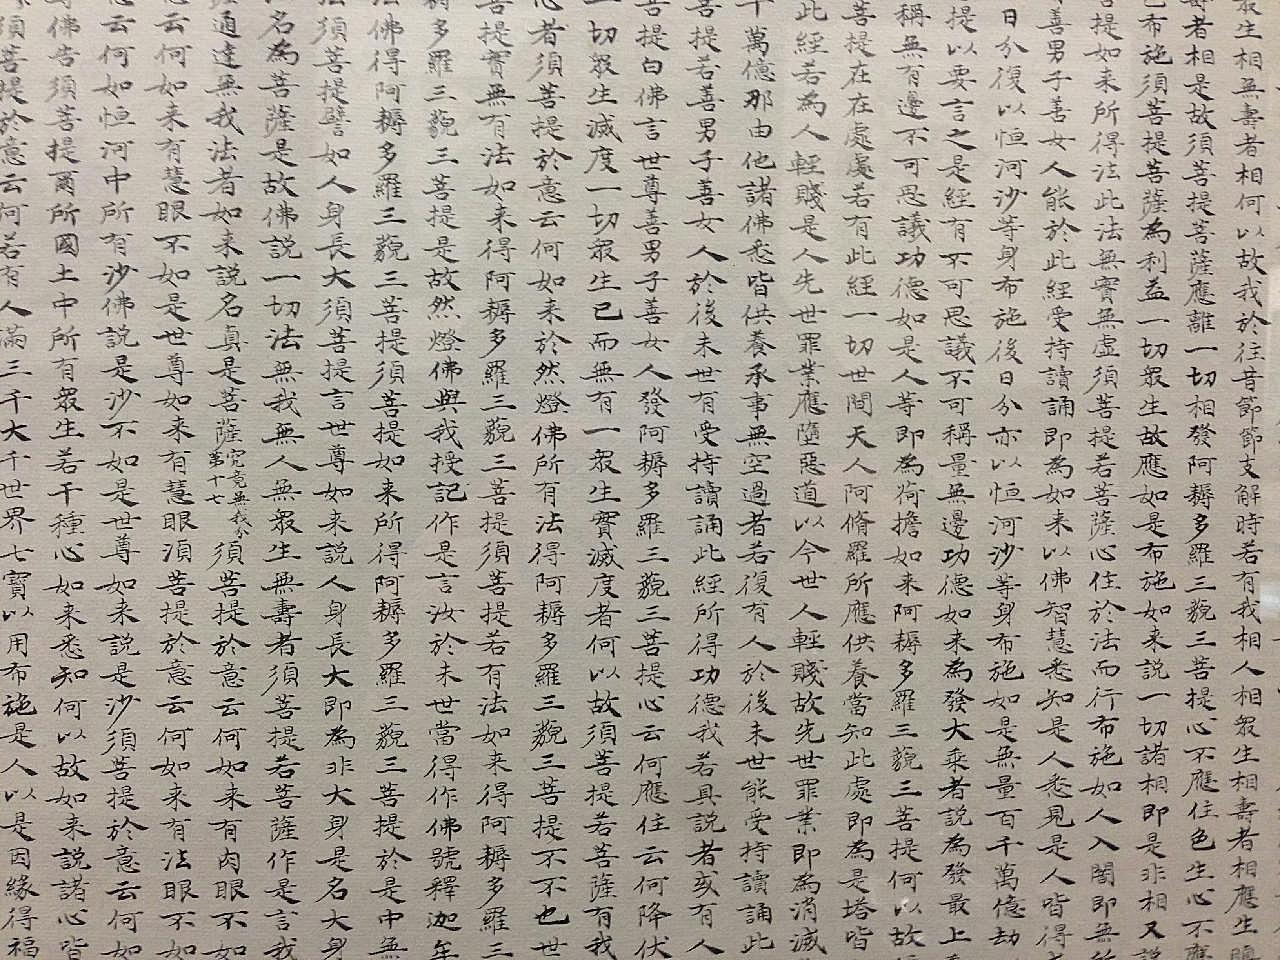 衆生相無壽者相何以故我於往昔節節支解時若有我相人相衆生相壽者相應生瞋
者相是故須菩提菩薩應離一切相發阿耨多羅三藐三菩提心不應住色生心不應
布施須菩提菩薩為利益一切衆生故應如是布施如来說一切諸相即是非相又說
提如来所得法此法無實無虛須菩提若菩薩心住於法而行布施如人入闇即無所
善男子善女人能於此經受持讀誦即為如来以佛智慧悉知是人悉見是人皆得
日分復以恒河沙等身布施後日分亦以恒河沙等身布施如是無量百千萬億劫
提以要言之是經有不可思議不可稱量無邊功德如来為發大乘者說為發最上
稱無有邊不可思議功德如是人等即為荷擔如来阿耨多羅三藐三菩提何以故
菩提在在處處若有此經一切世間天人阿脩羅所應供養當知此處即為是塔皆
此經若為人輕賤是人先世罪業應墮惡道以今世人輕賤故先世罪業即為消滅
千萬億那由他諸佛悉皆供養承事無空過者若復有人於後末世能受持讀誦此
菩提若善男子善女人於後末世有受持讀誦此經所得功德我若具說者或有人
菩提白佛言世尊善男子善女人發阿耨多羅三藐三菩提心云何應住云何降伏
一切衆生滅度一切衆生已而無有一衆生實滅度者何以故須菩提若菩薩有我
心者須菩提於意云何如来於然燈佛所有法得阿耨多羅三藐三菩提不不也世
菩提實無有法如来得阿耨多羅三藐三菩提須菩提若有法如来得阿耨多羅三
耨多羅三藐三菩提是故然燈佛與我授記作是言汝於未世當得作佛號釋迦牟
法佛得阿耨多羅三藐三菩提須菩提如来所得阿耨多羅三藐三菩提於是中無
須菩提譬如人身長大須菩提言世尊如来說人身長大即為非大身是名大身
名為菩薩是故佛說一切法無我無人無衆生無壽者須菩提若菩薩作是言我
通達無我法者如来說名真是菩薩究竟無我分第十七須菩提於意云何如来有肉眼不如
意云何如来有慧眼不如是世尊如来有慧眼須菩提於意云何如来有法眼不如
云何如恒河中所有沙佛說是沙不如是世尊如来說是沙須菩提於意云何如
佛告須菩提爾所國土中所有衆生若干種心如来悉知何以故如来說諸心皆
須菩提於意云何若有人滿三千大千世界七寶以用布施是人以是因緣得福